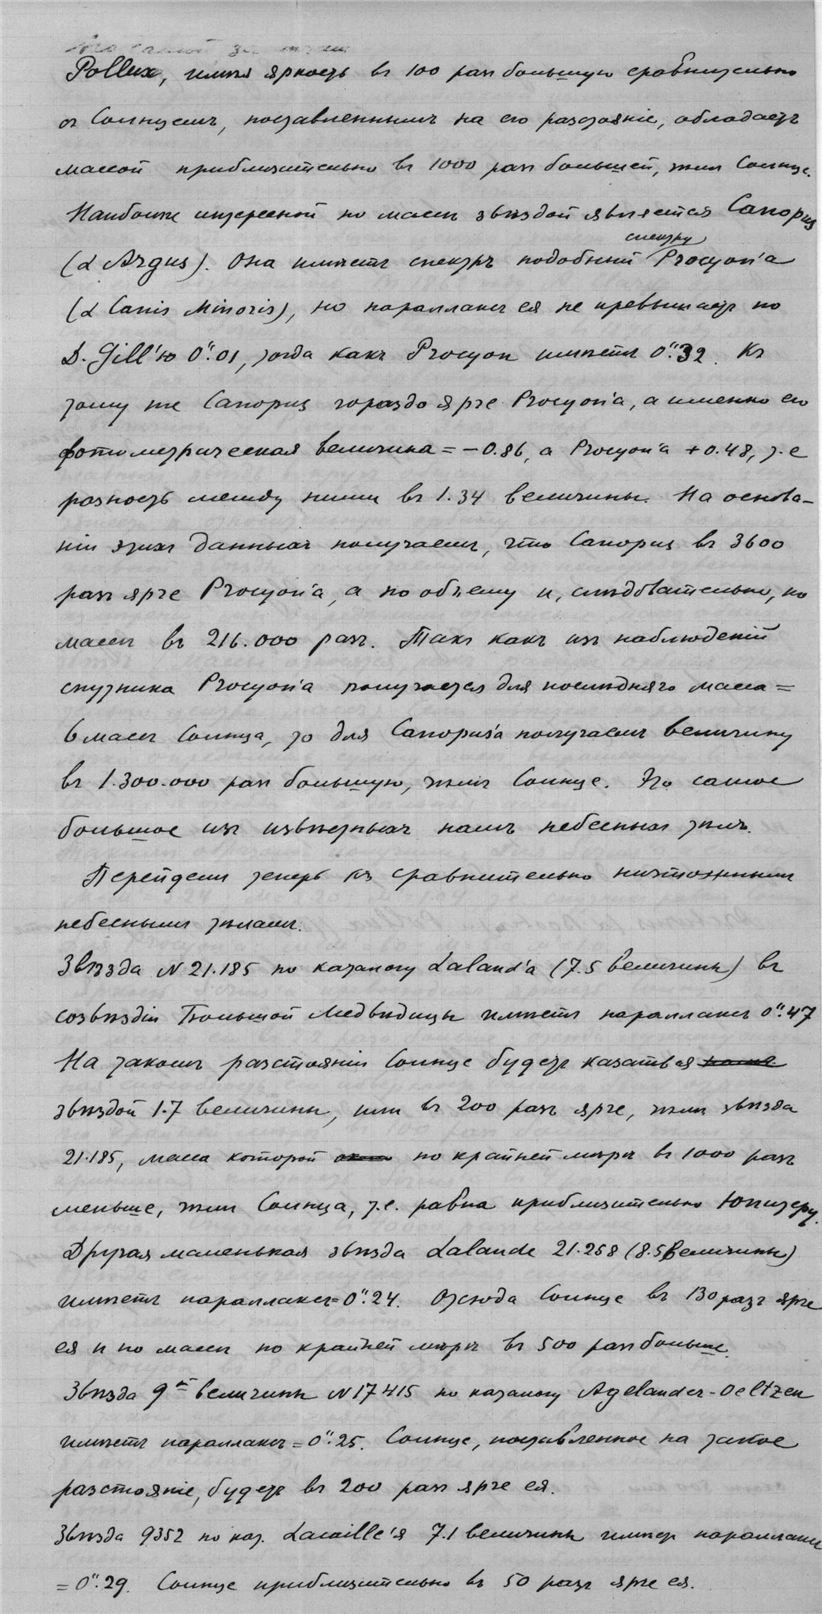 Pollux, имѣя яркость въ 100 разъ большую сравнительно
съ Солнцемъ, поставленнымъ на его разстояніе, обладаетъ
массой приблизительно въ 1000 разъ большей, чѣмъ Солнце.
Наиболѣе интересной по массѣ звѣздой является Canopus
спектру
(α Argus). Она имѣетъ спектръ подобный Procyon'а
(α Canis Minoris), но параллаксъ ея не превышаетъ по
D. Gill'ю 0".01, тогда какъ Procyon имѣетъ 0".32. Къ
тому же Canopus гораздо ярче Procyon'а, а именно его
фотометрическая величина = −0.86, а Procyon'а +0.48, т.е
разность между ними въ 1.34 величины. На основа-
ніи этихъ данныхъ получаемъ, что Canopus въ 3600
разъ ярче Procyon'а, а по объему и, слѣдовательно, по
массѣ въ 216.000 разъ. Такъ какъ изъ наблюденій
спутника Procyon'а получается для послѣдняго масса =
6 массъ Солнца, то для Canopus'а получаемъ величину
въ 1.300.000 разъ большую, чѣмъ Солнце. Это самое
большое изъ извѣстныхъ намъ небесныхъ тѣлъ.
Перейдемъ теперь къ сравнительно ничтожнымъ
небеснымъ тѣламъ.
Звѣзда N 21.185 по каталогу Laland'а (7.5 величины) въ
созвѣздіи Большой Медвѣдицы имѣетъ параллаксъ 0".47
На такомъ разстояніи Солнце будетъ казаться
звѣздой 1.7 величины, или въ 200 разъ ярче, чѣмъ звѣзда
21.185, масса которой по крайней мѣрѣ въ 1000 разъ
меньше, чѣмъ Солнца, т.е. равна приблизительно Юпитеру.
Другая маленькая звѣзда Lalande 21.258 (8.5 величины)
имѣетъ параллаксъ = 0".24. Отсюда Солнце въ 130 разъ ярче
ея и по массѣ по крайней мѣрѣ въ 500 разъ больше.
Звѣзда 9ой величины N 17415 по каталогу Agelander-Oeltzen
имѣетъ параллаксъ = 0".25. Солнце, поставленное на такое
разстояніе, будетъ въ 200 разъ ярче ея.
Звѣзда 9352 по кат. Lacaille'я 7.1 величины имѣетъ параллаксъ
= 0".29. Солнце приблизительно въ 50 разъ ярче ея.